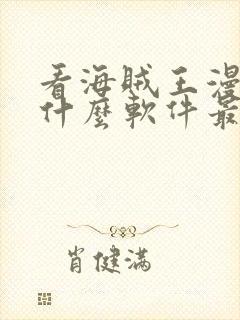 看海賊王漫
什麼軟件最
肖健滿